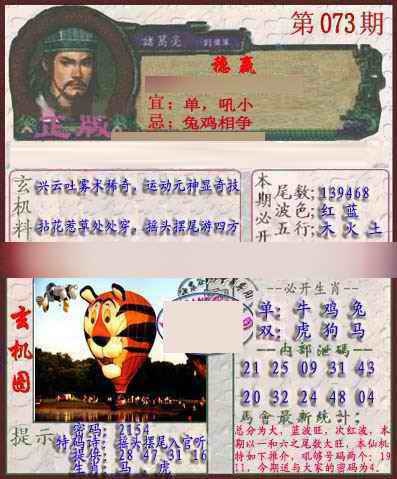 第073期
諸葛亮
穩贏
宜：单，吼小
忌：兔鸡相争
正版
玄机料
兴云吐雾术稀奇，运动元神显奇技
拈花惹草处处穿，摇头摆尾游四方
本期必开
尾数：139468
波色：红 蓝
五行：木 火 土
玄机图
--必开生肖--
单：牛 鸡 兔
双：虎 狗 马
--内部泄码--
21 25 09 31 43
20 32 24 48 04
馬會最新統計：
总分为大，蓝波旺，次红波，本
期以一和六之尾数大旺，本仙机
特如下推介，吼够号码两个：19
11，今期送与大家的密码为4．
提示
密码：2154
特码诗：摇头摆尾入官听
提供：28 47 31 16
生肖：马，虎